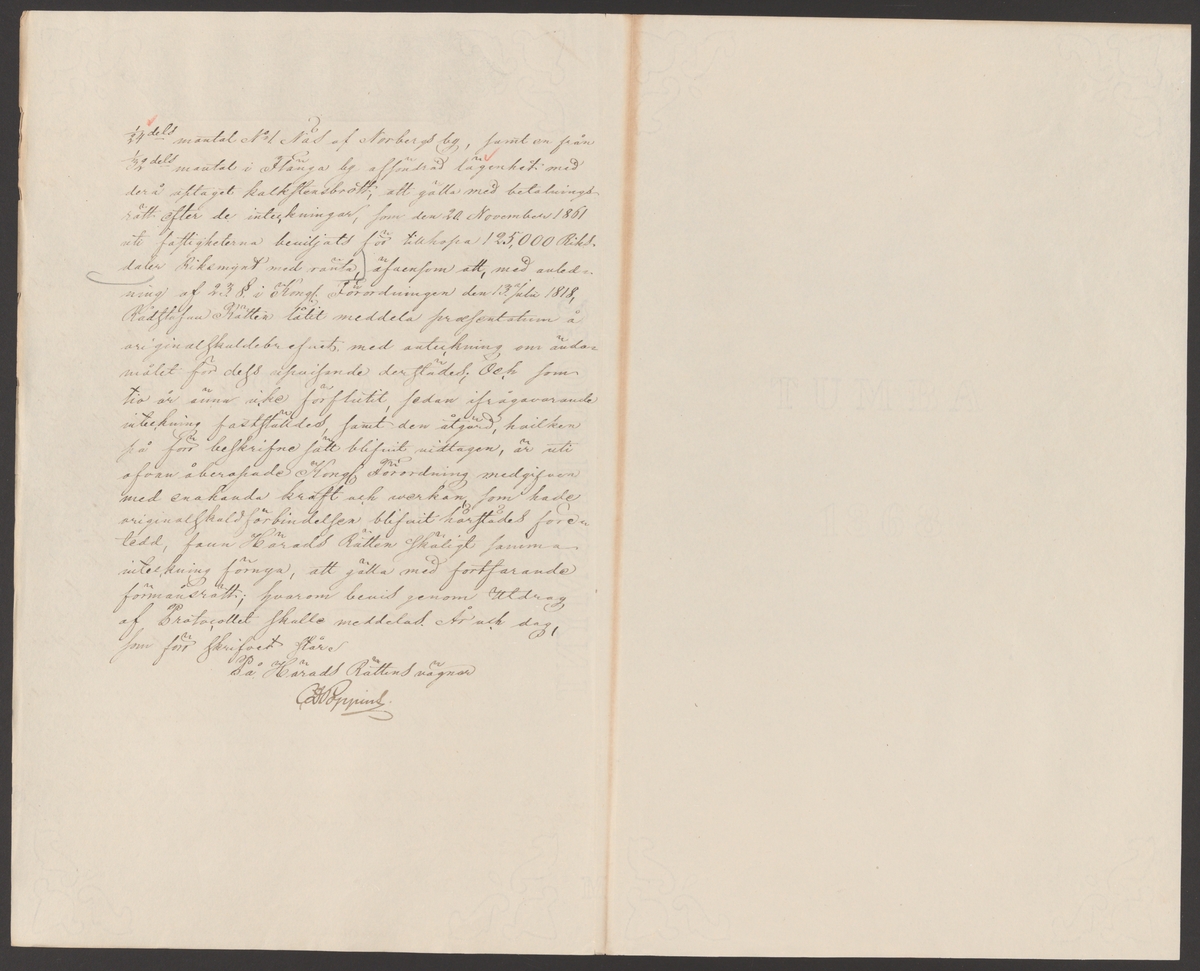 1/24 dels mantal No 1 Näs af Norbergs bg, samt en från
1/32 dels mantal i Flänga bg afsöndrad lägenhet med
derå uptaget kalkstensbrott; att gälla med betalnings-
rätt efter de inteckningar, som den 20 November 1861
uti fastigheterna beviljats för tillhopa 125,000 Riks-
daler Riksmynt med ränta, äfvensom att, med anled-
ning af 23 §. i Kongl. Förordningen den 13 Juli 1818,
Rådstufvu Rätten låtit meddela præsentatum å
originalskuldebrefvet med anteckning om ända-
målet för dess uppvisande derstädes; Och som
tio år ännu icke förflutit, sedan ifrågavarande
inteckning fastställdes, samt den åtgärd, hvilken
på förr beskrifne sätt blifvit vidtagen, är uti
ofvan åberopade Kongl. Förordning medgifven
med enahanda kraft och verkan, som hade
originalskuldförbindelsen blifvit härstädes före-
tedd, fann Härads Rätten skäligt samma
inteckning förnya, att gälla med fortfarande
förmånsrätt; hvarom bevis genom Utdrag
af Protocollet skulle meddelas. År och dag,
som förr skrifvet står.
På Härads Rättens vägnar
Poppius